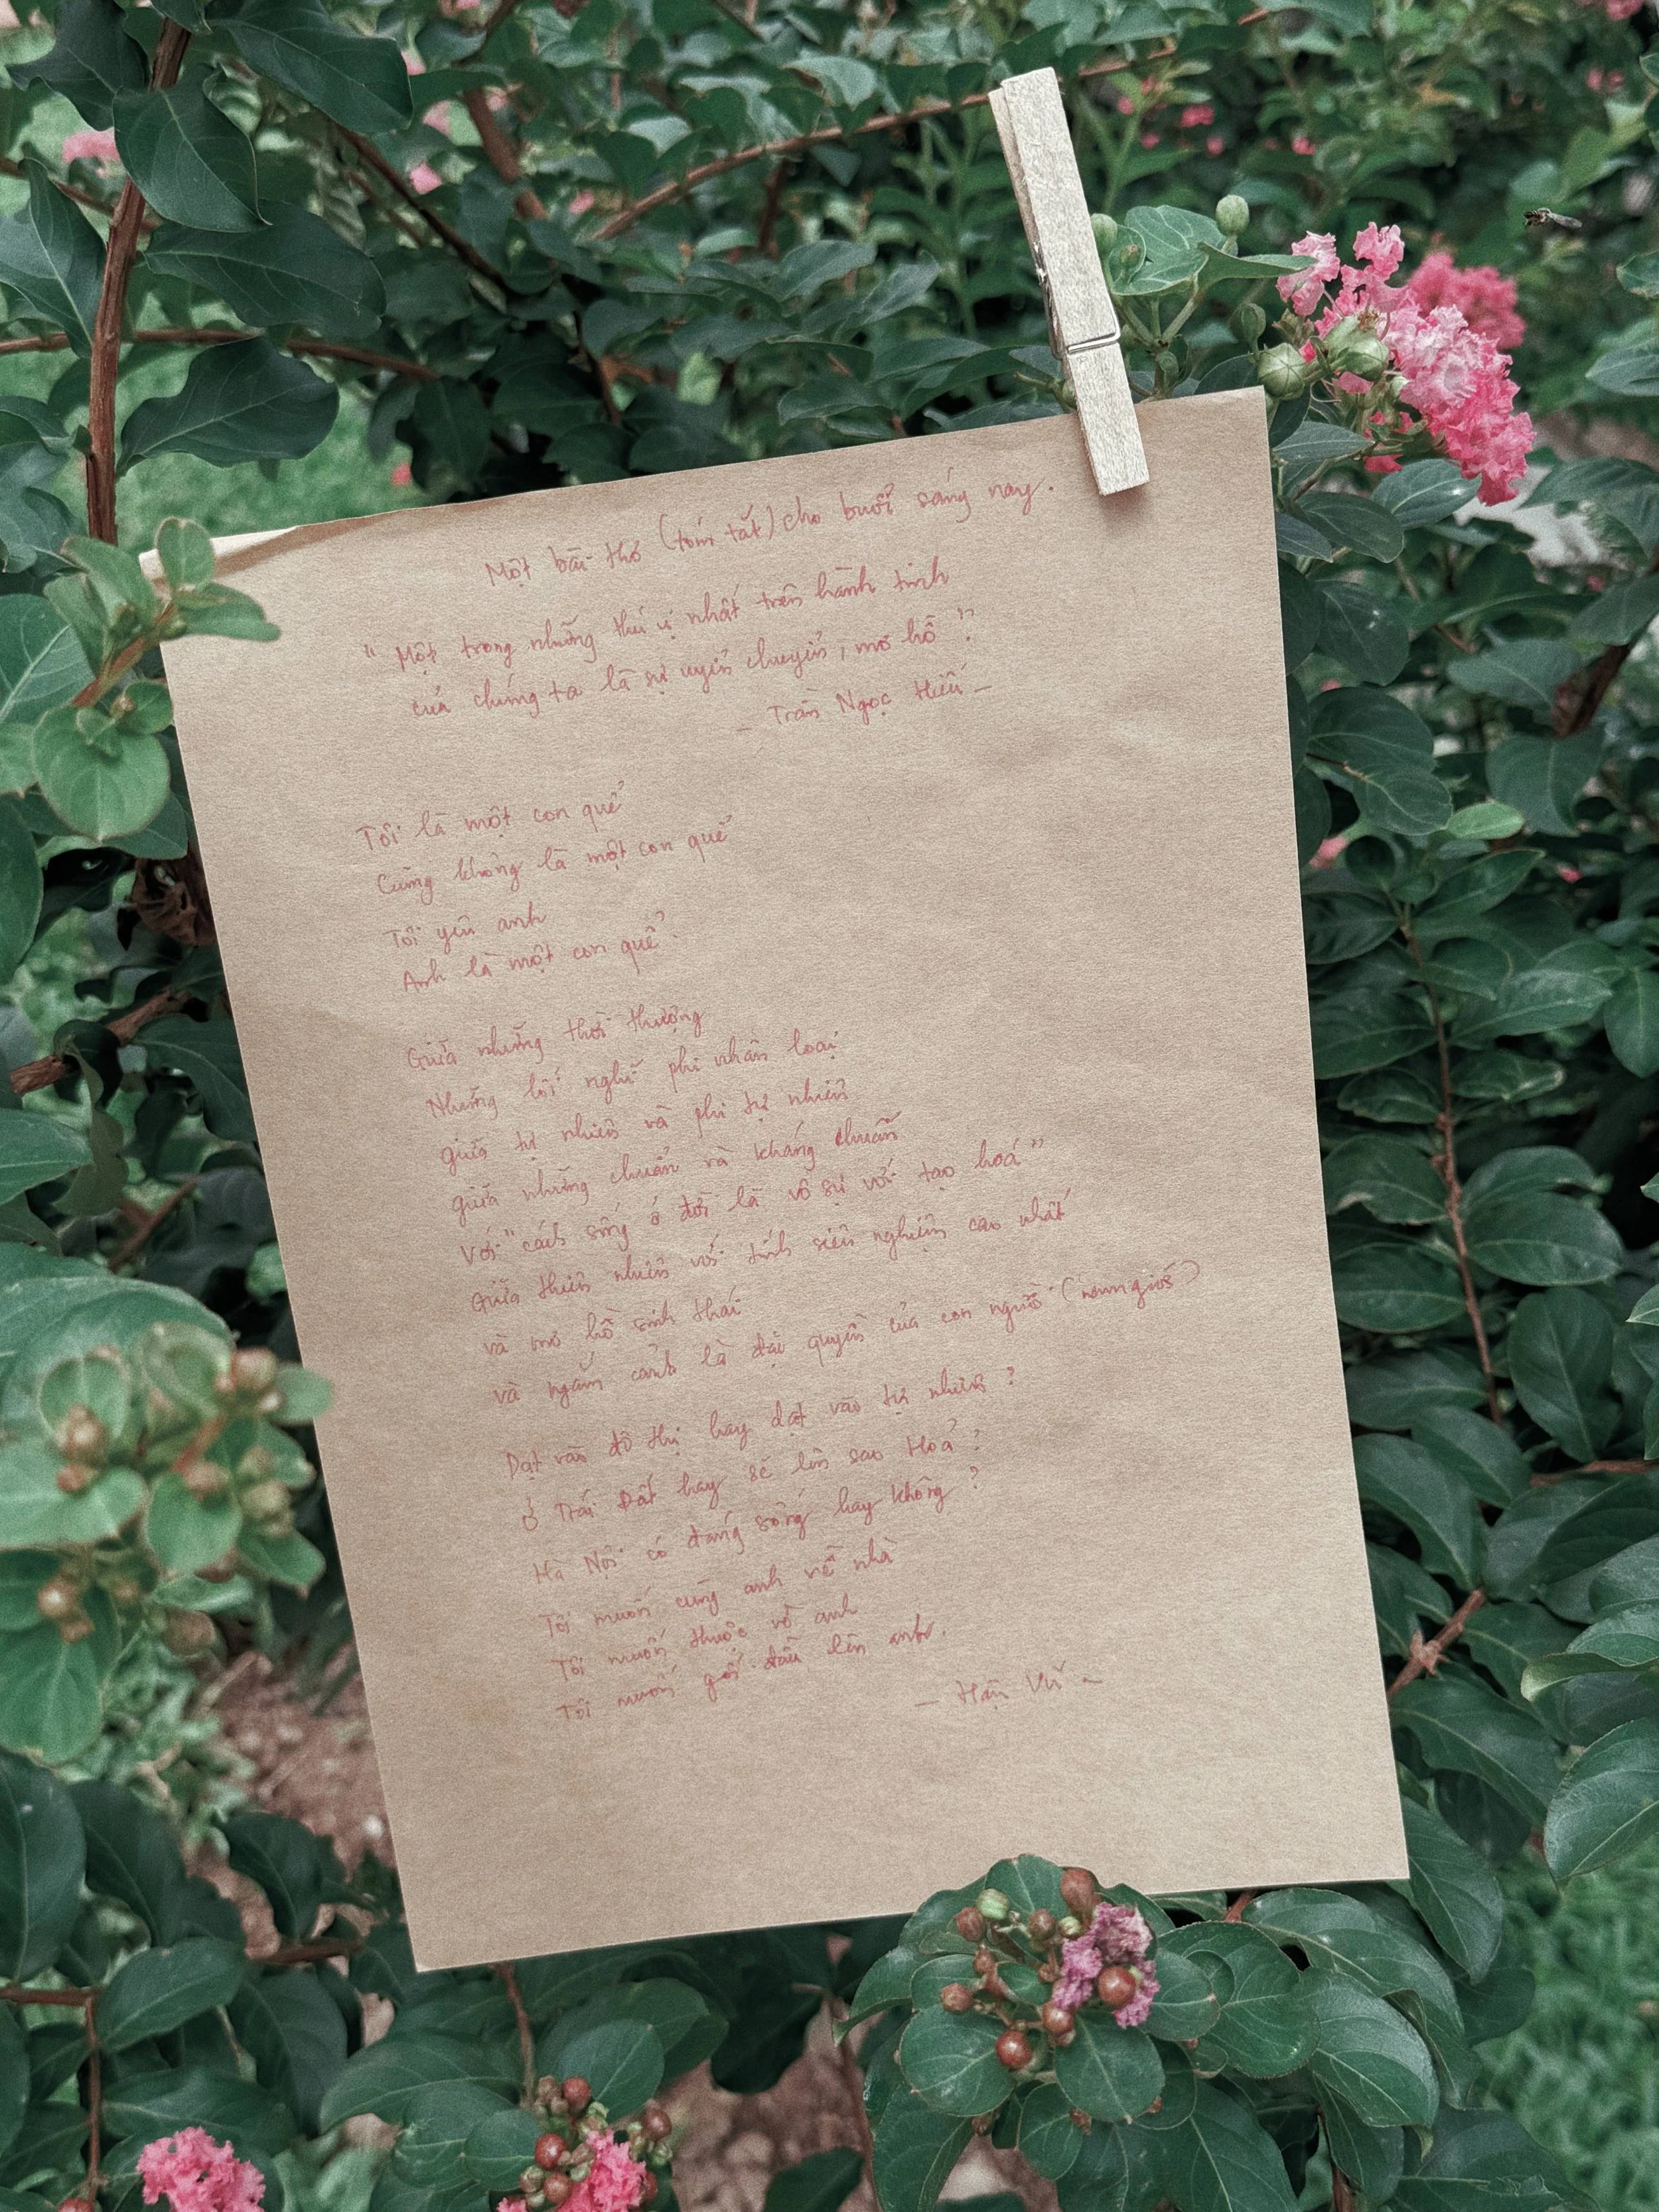 Một bài thơ (tóm tắt) cho buổi sáng nay.
"Một trong những thú vị nhất trên hành tinh
của chúng ta là sự uyển chuyển, mơ hồ"
– Trần Ngọc Hiếu –
Tôi là một con quể
Cũng không là một con quể
Tôi yêu anh
Anh là một con quể.
Giữa những thời thượng
Những lối nghĩ phi nhân loại
giữa tự nhiên và phi tự nhiên
giữa những chuẩn và kháng chuẩn
Với "cách sống ở đời là vô sự với tạo hoá"
Giữa thiên nhiên với tính siêu nghiệm cao nhất
và mơ hồ sinh thái
và ngắm cảnh là đặc quyền của con người
Dạt vào đô thị hay dạt vào tự nhiên?
Ở Trái Đất hay sẽ lên sao Hoả?
Hà Nội có đang sống hay không?
Tôi muốn cùng anh về nhà
Tôi muốn thuộc về anh
Tôi muốn gối đầu lên anh.